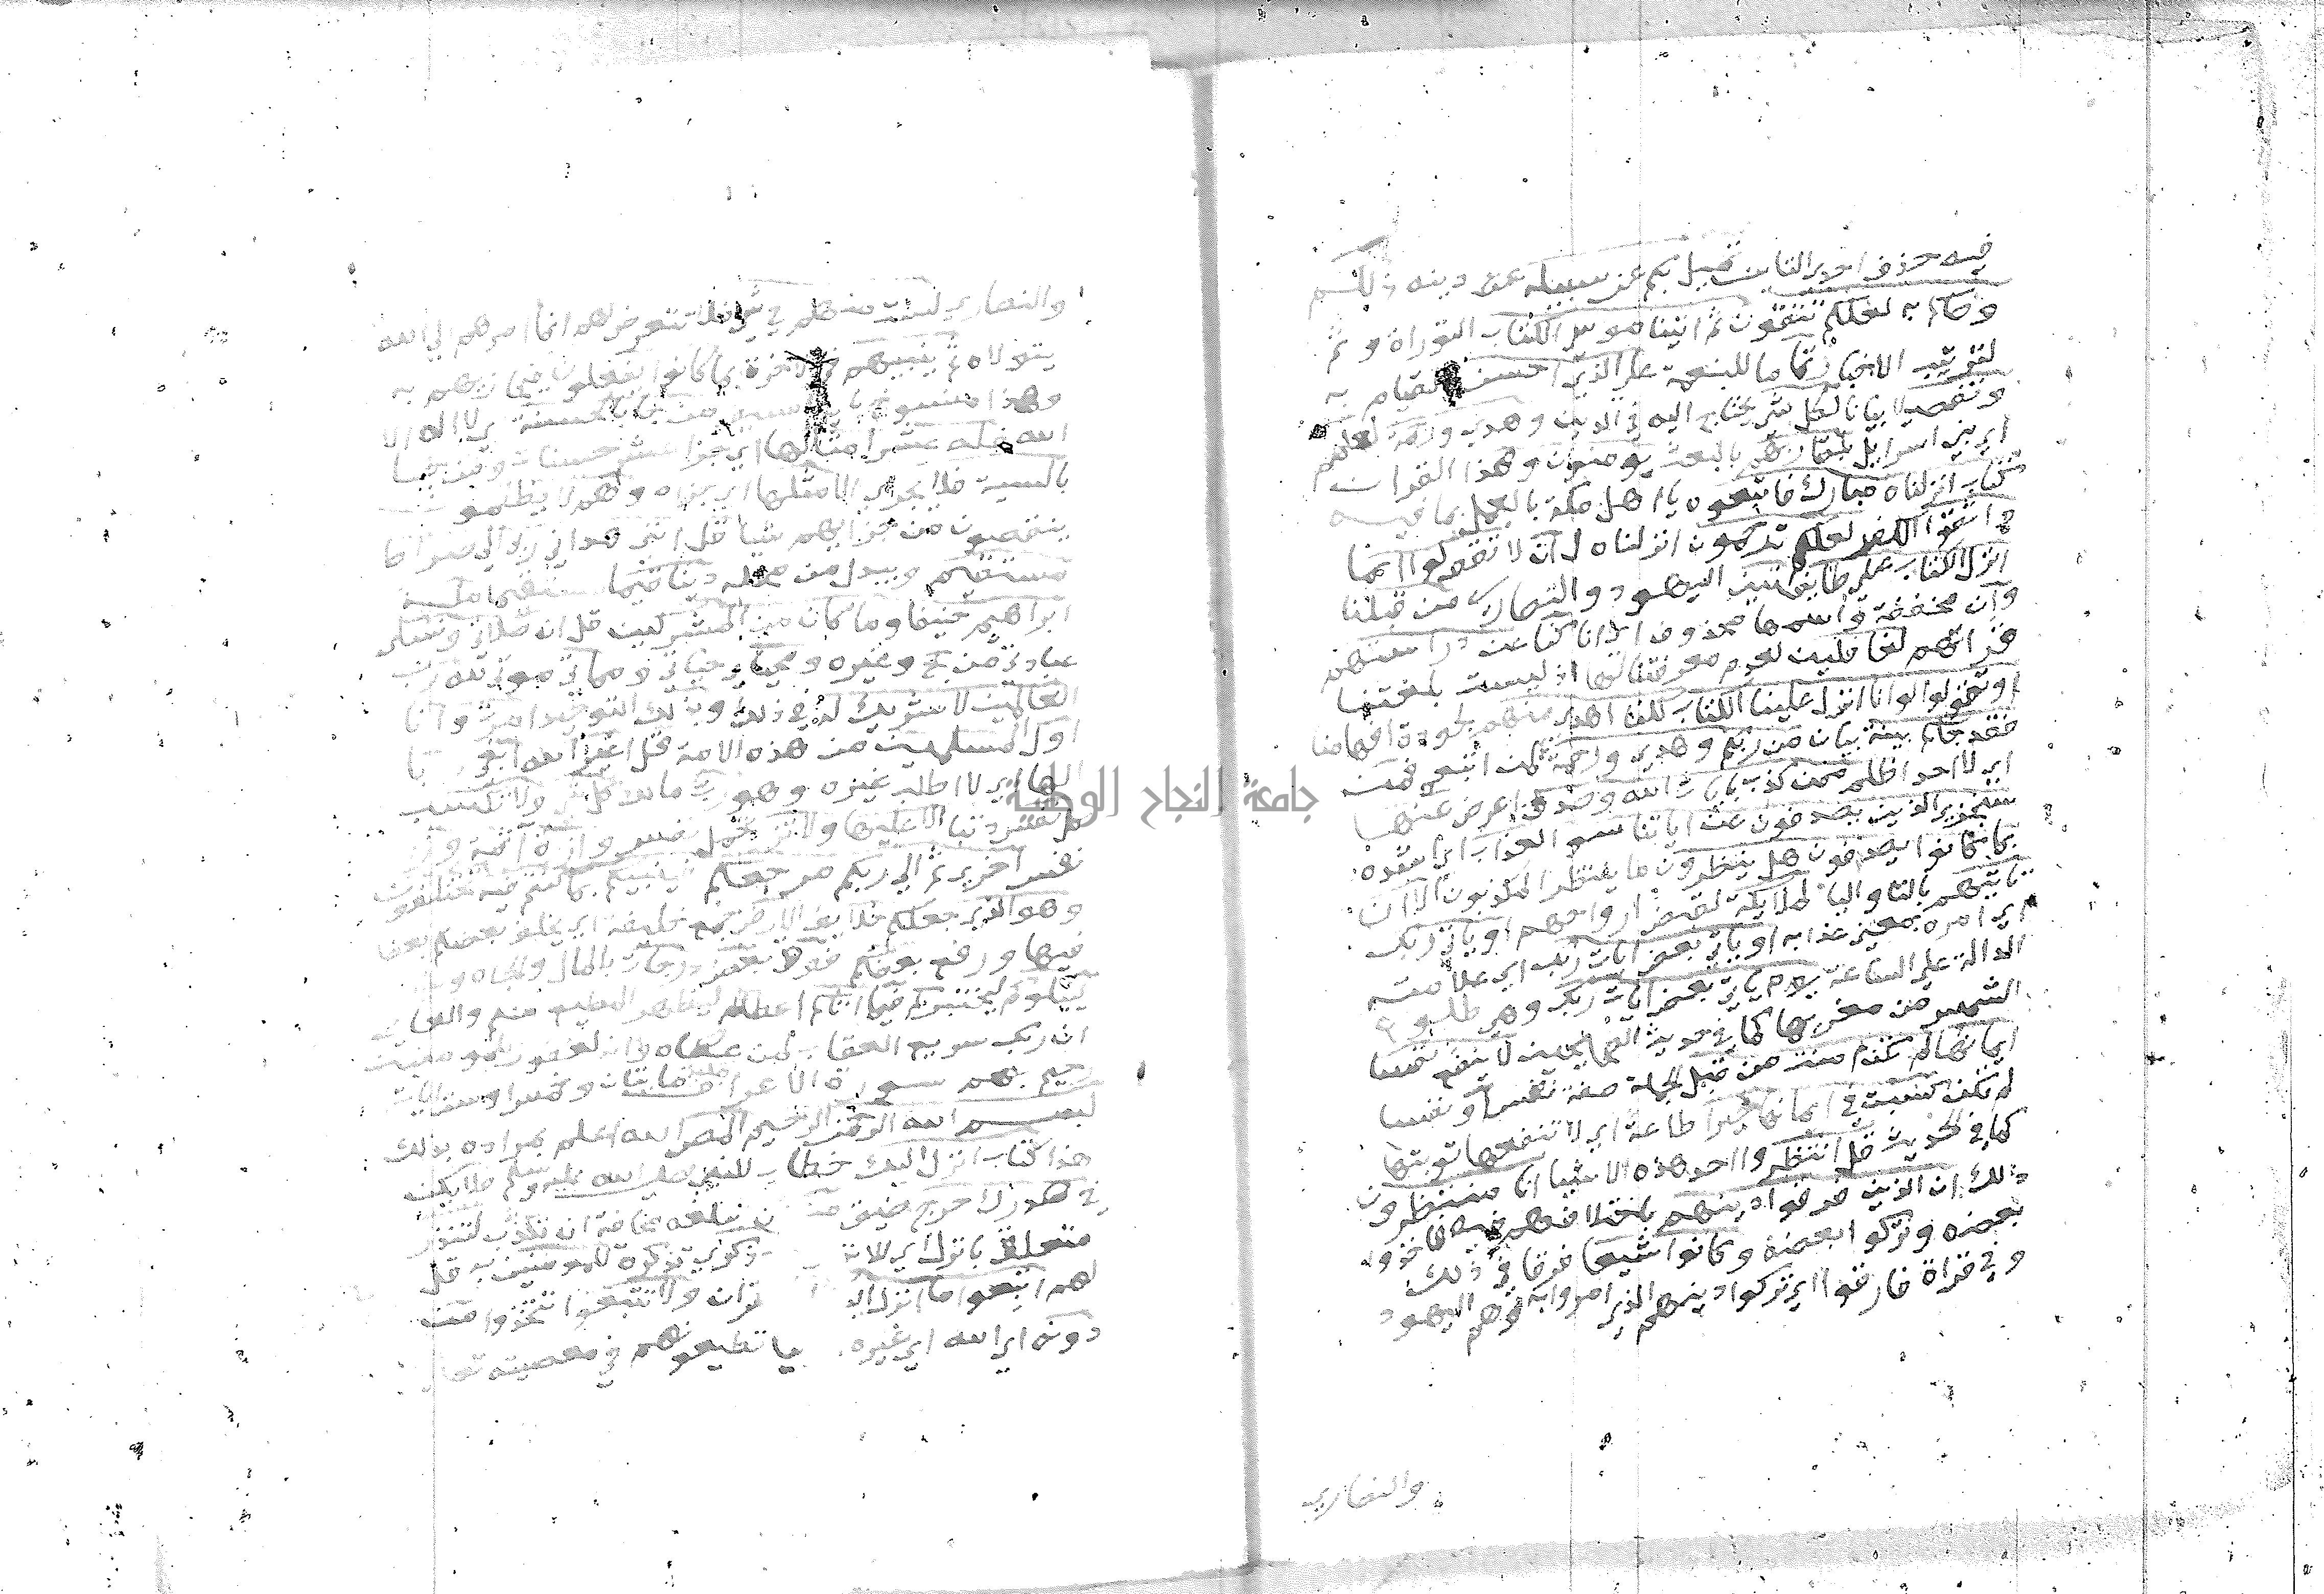 فيه حذف احدي التاين تميل بكم عن سبيله عن دينه ذلكم
وصاكم به لعلكم تتقون ثم اتينا موسي الكتاب التوراة وثم
لترتيب الاخبار تماما للنعمة علي الذي احسن القيام به
وتفصيلا بيانا لكل شي يحتاج اليه في الدين وهدي ورحمة لعلهم
اي بني اسرايل بلقا ربهم بالبعث يومنون وهذا القران
كتاب انزلناه مبارك فاتبعوه يا اهل مكة بالعمل بما فيه
واتقوا الكفر لعلكم ترحمون انزلناه ل ان لا تقولوا انما
انزل الكتاب علي طايفتين اليهود والنصاري من قبلنا
وان مخففة واسمها محذوف اي انا كنا عن دراستهم
قراتهم لغافلين لعدم معرفتنا لها اذ ليست بلغتنا
او تقولوا لو انا انزل علينا الكتاب لكنا اهدي منهم لجودة افهامنا
فقد جاكم بينة بيان من ربكم وهدي ورحمة لمن اتبعه فمن
اي لا احد اظلم ممن كذب بايات الله وصدف اعرض عنها
سنجزي الذين يصدفون عن اياتنا سو العذاب اي اشده
بما كانوا يصدفون هل ينظرون ما ينتظر المكذبون الا ان
تاتيهم بالتا واليا الملايكة لقبض ارواحهم او ياتي ربك
اي امره بمعني عذابه او ياتي بعض ايات ربك اي علامته
الدالة علي الساعة يوم ياتي بعض ايات ربك وهي طلوع
الشمس من مغربها كما في حديث الصحيحين لا ينفع نفسا
ايمانها لم تكن امنت من قبل الجملة صفة نفس او نفسا
لم تكن كسبت في ايمانها خيرا طاعة اي لا تنفعها توبتها
كما في الحديث قل انتظروا احد هذه الاشيا انا منتظرون
ذلك ان الذين فرقوا دينهم باختلافهم فيه فاخذوا
بعضه وتركوا بعضه وكانوا شيعا فرقا في ذلك
وفي قراة فارقوا اي تركوا دينهم الذي امروا به وهم اليهود
والنصاري
والنصاري لست منهم في شي فلا تتعرض لهم انما امرهم الي الله
يتولاه ثم ينبيهم في الاخرة بما كانوا يفعلون فيجازيهم به
وهذا منسوخ باية السيف من جا بالحسنة اي لا اله الا
الله فله عشر امثالها اي جزا عشر حسنات ومن جا
بالسية فلا يجزي الا مثلها اي جزاه وهم لا يظلمو
ينقصون من جزايهم شيا قل انني هداني ربي الي صراط
مستقيم ويبدل من محله دينا قيما مستقيما ملة
ابراهيم حنيفا وما كان من المشركين قل ان صلاتي ونسكي
عبادتي من حج وغيره ومحياي حياتي ومماتي موتي لله رب
العالمين لا شريك له في ذلك وبذلك التوحيد امرت وانا
اول المسلمين من هذه الامة قل اغير الله ابغي ربا
الها اي لا اطلب غيره وهو رب مالك كل شي ولا تكسب
كل نفس ذنبا الا عليها ولا تزر تحمل نفس وازرة آثمة وزر
نفس اخري ثم الي ربكم مرجعكم فينبيكم بما كنتم فيه تختلفون
وهو الذي جعلكم خلايف الارض جمع خليفة اي يخلف بعضكم بعضا
فيها ورفع بعضكم فوق بعض درجات بالمال والجاه و
ليبلوكم ليختبركم فيما اتاكم اعطاكم ليظهر المطيع منكم والعاصي
ان ربك سريع العقاب لمن عصاه وانه لغفور للمومنين
رحيم بهم سورة الاعراف مكية مايتان وخمس او ست ايات
بسم الله الرحمن الرحيم المص الله اعلم بمراده بذلك
هذا كتاب انزل اليك خطاب للنبي صلي الله عليه وسلم فلا يكن
في صدرك حرج ضيق منه ان تبلغه مخافة ان تكذب لتنذر
متعلق بانزل اي للانذ وذكري تذكرة للمومنين به قل
لهم اتبعوا ما انزل الي القران ولا تتبعوا تتخذوا من
دونه اي الله اي غيره يا تطيعونهم في معصيته تعالي
جامعة النجاح الوطنية